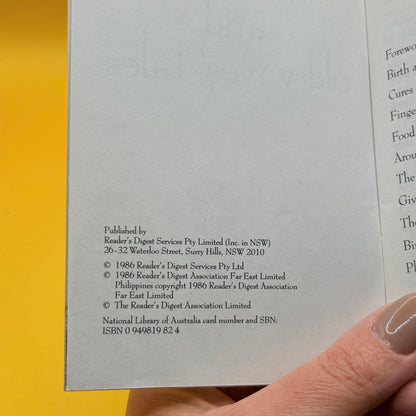 Published by
Reader's Digest Services Pty Limited (Inc. in NSW)
26-32 Waterloo Street, Surry Hills, NSW 2010
© 1986 Reader's Digest Services Pty Ltd
© 1986 Reader's Digest Association Far East Limited
Philippines copyright 1986 Reader's Digest Association
Far East Limited
© The Reader's Digest Association Limited
National Library of Australia card number and SBN:
ISBN 0 949819 82 4
Birth
Cures
Food
The